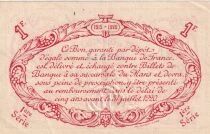 1F
1915-1920
1F
Ce Bon, garanti par dépôt
égal à somme à la Banque de France,
est délivré et échangé contre Billets de
Banque à sa succursale du Mans et devra,
sous peine de prescription, être présenté
au remboursement dans le délai de
cinq ans avant le
1ère
Série
1ère
Série